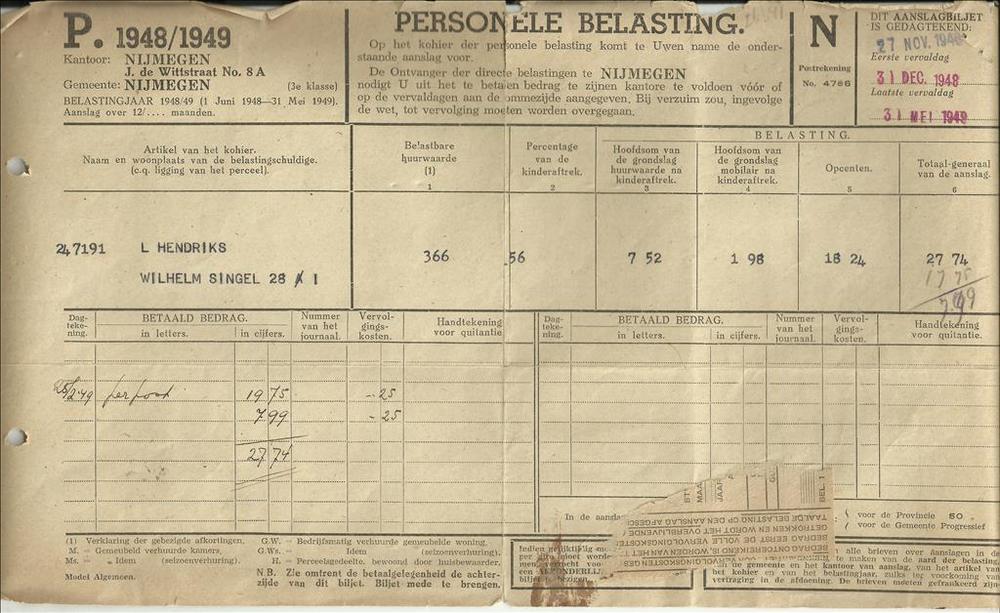 P. 1948/1949
Kantoor: NIJMEGEN
J. de Wittstraat No. 8 A
Gemeente: NIJMEGEN (3e klasse)
BELASTINGJAAR 1948/49 (1 Juni 1948—31 Mei 1949).
Aanslag over 12/.... maanden.
PERSONELE BELASTING.
Op het kohier der personele belasting komt te Uwen name de onder-
staande aanslag voor.
De Ontvanger der directe belastingen te NIJMEGEN
nodigt U uit het te betalen bedrag te zijnen kantore te voldoen vóór of
op de vervaldagen aan de ommezijde aangegeven. Bij verzuim zou, ingevolge
de wet, tot vervolging moeten worden overgegaan.
N
Postrekening
No. 4766
DIT AANSLAGBILJET
IS GEDAGTEKEND:
27 NOV. 1948
Eerste vervaldag
31 DEC. 1948
Laatste vervaldag
31 MEI 1949
Artikel van het kohier.
Naam en woonplaats van de belastingschuldige.
(c.q. ligging van het perceel).
Belastbare
huurwaarde
(1)
1
Percentage
van de
kinderaftrek.
2
BELASTING.
Hoofdsom van
de grondslag
huurwaarde na
kinderaftrek.
3
Hoofdsom van
de grondslag
mobilair na
kinderaftrek.
4
Opcenten.
5
Totaal-generaal
van de aanslag.
6
247191 L HENDRIKS
WILHELM SINGEL 28 A I
366 56 7 52 1 98 18 24 27 74
Dag-
teke-
ning.
BETAALD BEDRAG.
in letters. in cijfers.
Nummer
van het
journaal.
Vervol-
gings-
kosten.
Handtekening
voor quitantie.
Dag-
teke-
ning.
BETAALD BEDRAG.
in letters. in cijfers.
Nummer
van het
journaal.
Vervol-
gings-
kosten.
Handtekening
voor quitantie.
19 75 - 25
7 99 - 25
27 74
In de
voor de Provincie 50
voor de Gemeente Progressief
(1) Verklaring der gebezigde afkortingen.
M. = Gemeubeld verhuurde kamers.
Ms. = Idem (seizoenverhuring).
Model Algemeen.
G.W. = Bedrijfsmatig verhuurde gemeubelde woning.
G.Ws. = Idem (seizoenverhuring).
H. = Perceelsgedeelte, bewoond door huisbewaarder.
N B. Zie omtrent de betaalgelegenheid de achter-
zijde van dit biljet. Biljet mede te brengen.
alle brieven over aanslagen in de
te maken van de aard der belasting,
de gemeente en het kantoor van aanslag, van het artikel van
het kohier en van het belastingjaar, zulks ter voorkoming van
vertraging in de afdoening. De brieven moeten gefrankeerd